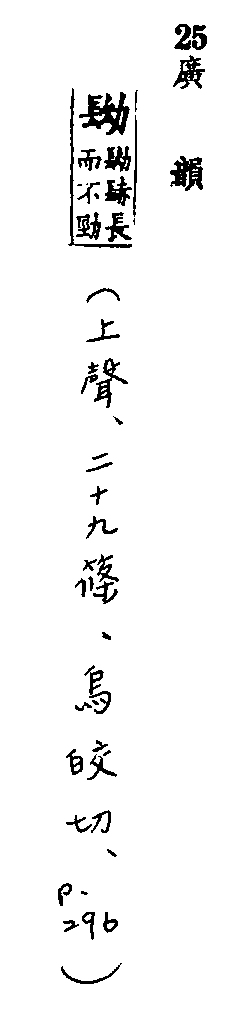 25
廣韻
長
而不勁
（上聲、二十九篠、烏皎切、p.296）